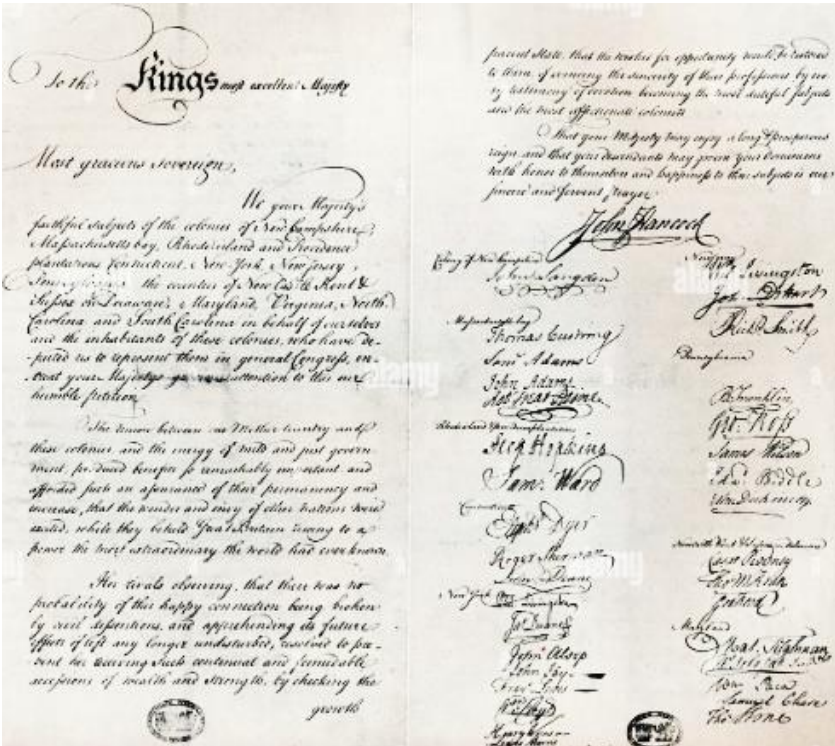 To the Kings most excellent Majesty
Most gracious Sovereign,
We your Majesty's
faithful subjects of the colonies of New Hampshire,
Massachusetts bay, Rhode island and Providence
plantations, Connecticut, New-York, New Jersey,
Pennsylvania, the counties of New Castle Kent &
Sussex on Delaware, Maryland, Virginia, North
Carolina and South Carolina in behalf of ourselves
and the inhabitants of these colonies, who have de-
puted us to represent them in general Congress, en-
treat your Majesty's gracious attention to this our
humble petition
The union between our Mother country and
these colonies, and the energy of mild and just govern-
ment, produced benefits so remarkably important and
afforded such an assurance of their permanency and
increase, that the wonder and envy of other nations were
excited, while they beheld Great Britain rising to a
power the most extraordinary the world had ever known.
Her rivals observing, that there was no
probability of this happy connection being broken
by civil dissentions, and apprehending its future
effects if left any longer undisturbed, resolved to pre-
vent her receiving such continual and formidable
accessions of wealth and strength, by checking the
growth
parent State, that the wishes for opportunity would be restored
to them, of evincing the sincerity of their professions by eve-
ry testimony of devotion becoming the most dutiful subjects
and the most affectionate colonists
That your Majesty may enjoy a long & prosperous
reign, and that your descendants may govern your Dominions
with honor to themselves and happiness to their subjects is our
sincere and fervent prayer
John Hancock
Colony of New Hampshire
John Langdon
Massachusetts bay
Thomas Cushing
Saml Adams
John Adams
Robt Treat Paine
Step Hopkins
Sam: Ward
Connecticut
Elipht Dyer
Roger Sherman
Silas Deane
New York
Jas Duane
John Alsop
John Jay
Wm Floyd
Lewis Morris
Livingston
Richd Smith
Pennsylvania
B Franklin
Geo: Ross
James Wilson
Edwd Biddle
Caesar Rodney
Tho M:Kean
Geo Read
Maryland
Mat. Tilghman
Wm Paca
Samuel Chase
Tho: Stone
alamy